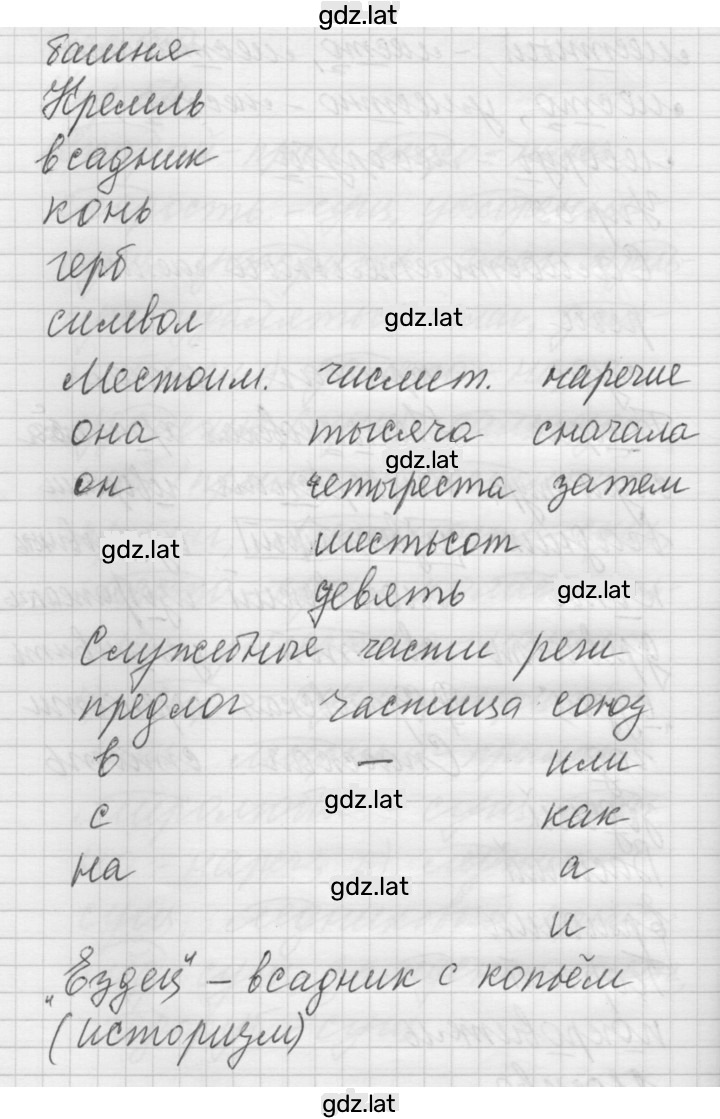 gdz.lat
башня
Кремль
всадник
конь
герб
символ
gdz.lat
Местоим. числит. наречие
она тысяча сначала
gdz.lat
он четыреста затем
gdz.lat
шестьсот
девять
gdz.lat
Служебные части речи
предлог частица союз
в — или
gdz.lat
с как
на а
gdz.lat
и
„Ездец" – всадник с копьём
(историзм)
gdz.lat